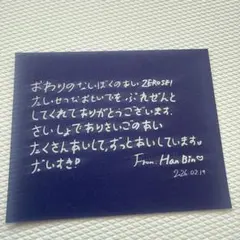 おわりのないぼくのあい ZEROSE!
たいせつなおもいでを ぷれぜんと
してくれてありがとうございます.
さいしょでありさいごのあい
たくさんあいして,ずっとあいしています♡
だいすき!
From. Han Bin♡
2.26.02.19